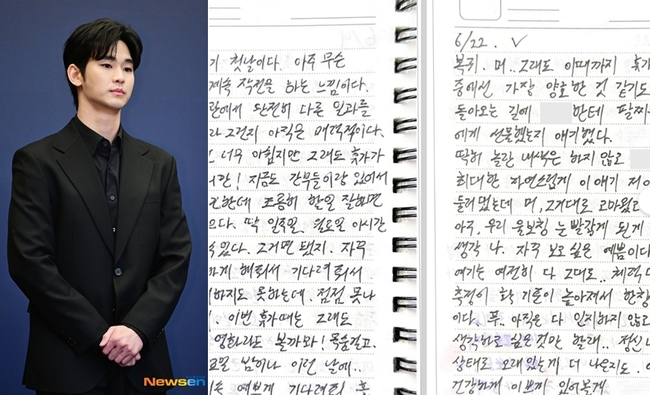 Newsen
기 첫날이다. 아주 무슨
계속 작전을 하는 느낌이다.
란에서 단전히 다른 일과를
라 그런지 아직은 매력적이다.
너무 아쉽지만 그래도 휴가가
지금도 간부들이랑 있어서
한데 조용히 할일 잘하면
딱 일주일, 월요일 이시간
수있다. 그거면 됐지. 자꾸
하게 해줘서 기다려줘서
하지도 못하는데. 점점 못나
이번 휴가때는 그래도
영화라도 볼까봐!
요일 밤이나 이런 날에..
예쁘게 기다려줘
6/22.
복귀. 머.. 그래도 이때까지 휴가
중에선 가장 양호한 것 같기도
돌아오는 길에 한테 팔찌
에게 선물했는지 얘기했다.
딱히 놀란 내색은 하지 않고
최대한 자연스럽게 이 얘기 저
들려줬는데 머, 그거대로 고마웠고
아주, 우리 울보찡 눈 빨갛게 된게
생각 나. 자꾸 보고 싶은 예쁨이다
여기는 여전히 다 그대로.. 체력
측정이 확 기준이 높아져서 한창
이다. 푸. 아직은 다 인지하지 않고
생각하고 싶은 것만 할래.. 정신
상태로 오래있는게 더 나은지도.
건강하게 이쁘게 있어볼게.